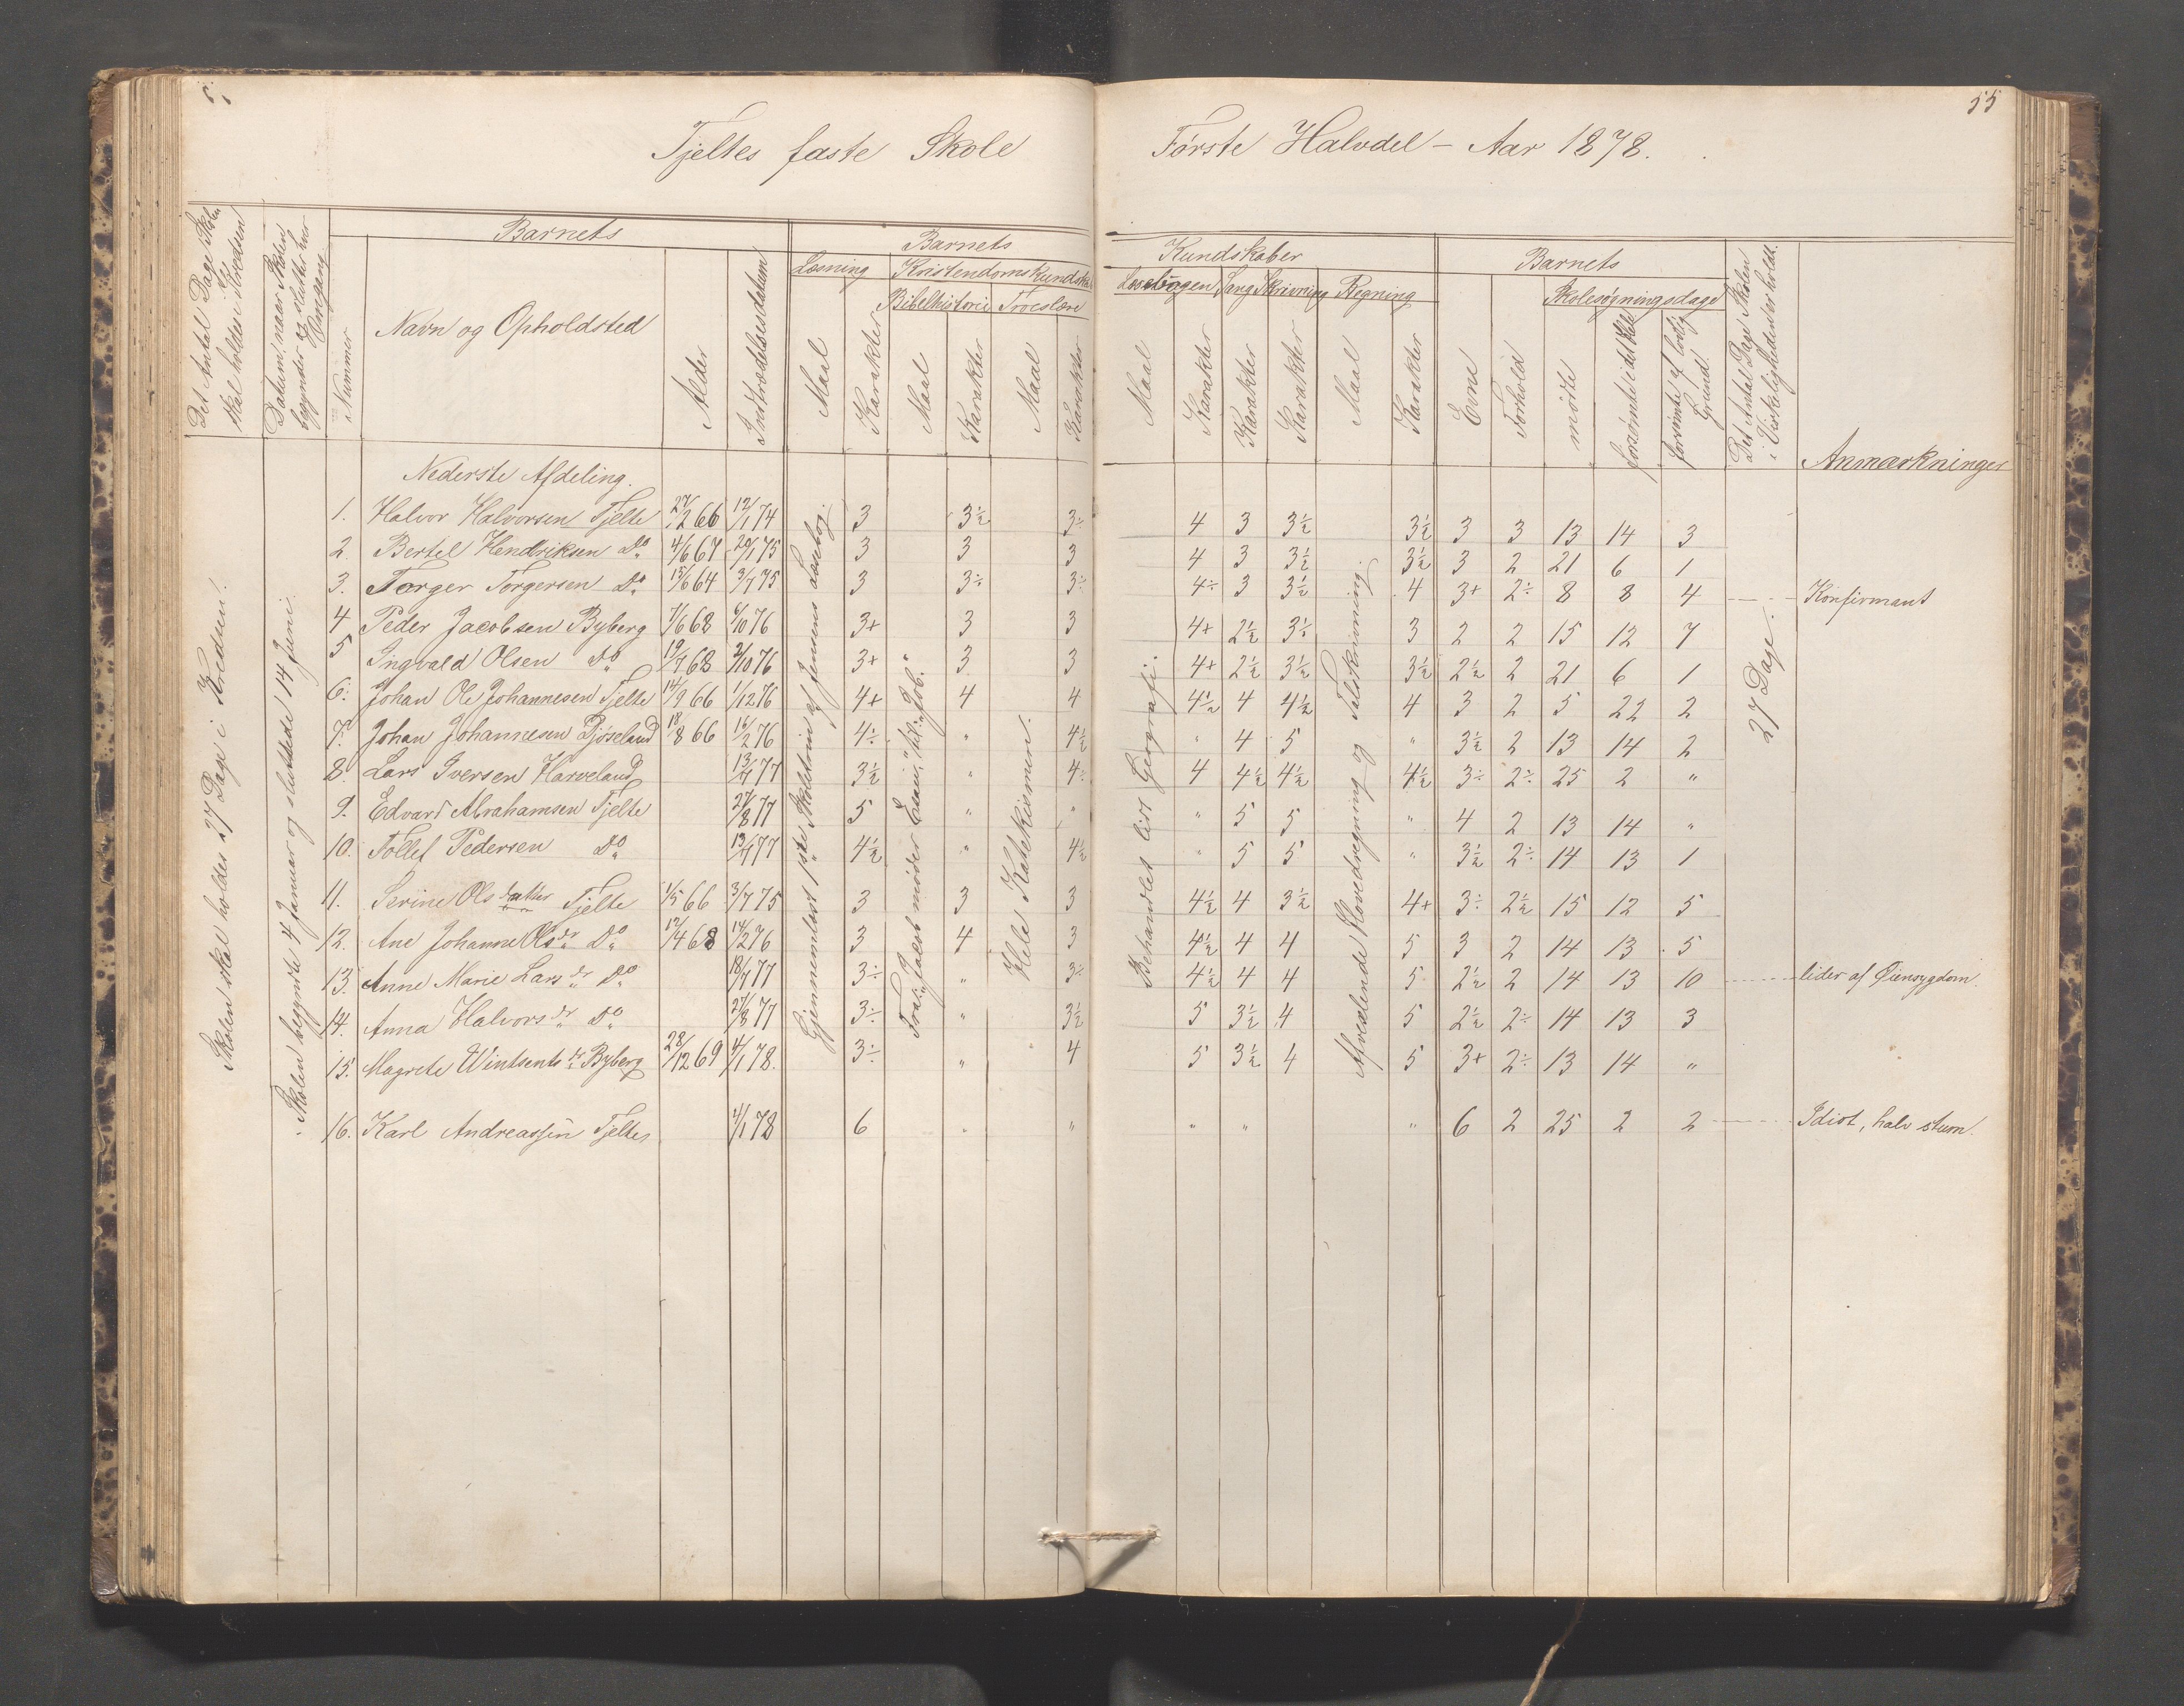 55
Tjeltes faste Skole
Første Halvdel – Aar 1878.
Det Antal Dage Skolen skal holdes i Kredsen
Datum, naar Skolen begynder og slutter hver Omgang
Barnets
Nummer
Navn og Opholdsted
Alder
Indtrædelsesdatum
Barnets
Læsning
Kristendomskundskab
Bibelhistorie
Troeslære
Maal
Karakter
Maal
Karakter
Maal
Karakter
Kundskaber
Læsebogen
Sang
Skrivning
Regning
Maal
Karakter
Karakter
Karakter
Maal
Karakter
Barnets
Evne
Forhold
Skolesøgningsdage
mødte
forsømte i det Hele
forsømte af lovlig Grund
Det Antal Dage Skolen i Virkeligheden er holdt.
Anmærkninger
Skolen skal holdes 27 Dage i Kredsen.
Skolen begyndte 4 Januar og sluttede 14 Juni.
Gjennemlæst 1ste Skoletrin af Jensens Læsebog.
Fra: "Jacob møder Esau," til: "Job."
Hele Katekismen.
Behandlet lidt Geografi.
Afvexlende Hovedregning og Talskrivning.
27 Dage.
Nederste Afdeling.
1. Halvor Halvorsen Tjelte 27/2 66 12/1 74 3 3½ 3÷ 4 3 3½ 3½ 3 3 13 14 3
2. Bertel Hendriksen Do 4/6 67 20/1 75 3 3 3 4 3 3½ 3½ 3 2 21 6 1
3. Torger Torgersen Do 15/6 64 3/7 75 3 3÷ 3÷ 4÷ 3 3½ 4 3+ 2÷ 8 8 4 Konfirmant
4 Peder Jacobsen Byberg 7/6 68 6/10 76 3+ 3 3 4+ 2½ 3½ 3 2 2 15 12 7
5 Ingvald Olsen Do 19/7 68 2/10 76 3+ 3 3 4+ 2½ 3½ 3½ 2½ 2 21 6 1
6. Johan Ole Johannesen Tjelte 14/9 66 1/12 76 4+ 4 4 4½ 4 4½ 4 3 2 5 22 2
7. Johan Johannesen Bjöseland 18/8 66 16/2 76 4÷ " 4½ " 4 5 " 3½ 2 13 14 2
8 Lars Iversen Harveland 13/7 77 3½ " 4÷ 4 4½ 4½ 4½ 3÷ 2÷ 25 2 "
9. Edvard Abrahamsen Tjelte 27/8 77 5 " " " 5 5 " 4 2 13 14 "
10. Tollef Pedersen Do 13/7 77 4½ " 4½ " 5 5 " 3½ 2÷ 14 13 1
11. Serine Olsdatter Tjelte 1/5 66 3/7 75 3 3 3 4½ 4 3½ 4+ 3÷ 2½ 15 12 5
12. Ane Johanne Olsdr Do 12/4 68 14/2 76 3 4 3 4½ 4 4 5 3 2 14 13 5
13. Anne Marie Larsdr Do 18/7 77 3÷ " 3÷ 4½ 4 4 5 2½ 2 14 13 10 lider af Øiensygdom.
14. Anna Halvorsdr Do 27/8 77 3÷ " 3½ 5 3½ 4 5 2½ 2÷ 14 13 3
15. Magrete Wintsentsdr Byberg 28/12 69 4/1 78. 3÷ " 4 5 3½ 4 5 3+ 2÷ 13 14 "
16. Karl Andreassen Tjelte 4/1 78 6 " " " " " 6 2 25 2 2 Idiot, halv stum.